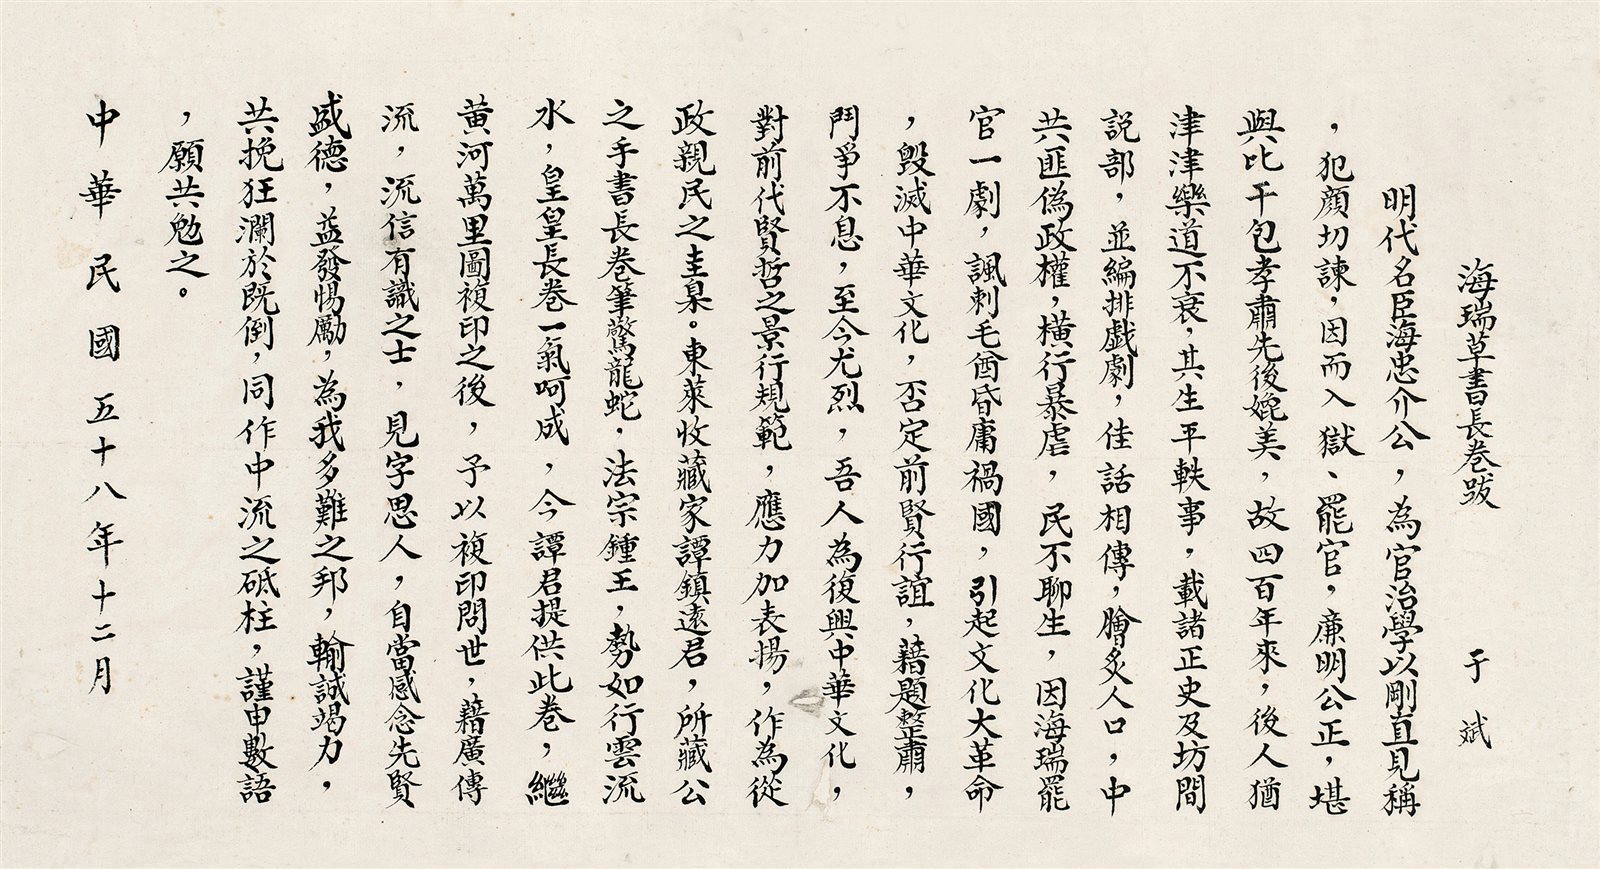 海瑞草書長卷跋　于斌
明代名臣海忠介公，為官治學以剛直見稱
，犯顏切諫，因而入獄、罷官，廉明公正，堪
與比干包孝肅先後媲美，故四百年來，後人猶
津津樂道不衰，其生平軼事，載諸正史及坊間
説部，並編排戲劇，佳話相傳，膾炙人口，中
共匪偽政權，橫行暴虐，民不聊生，因海瑞罷
官一劇，諷刺毛酋昏庸禍國，引起文化大革命
，毀滅中華文化，否定前賢行誼，藉題整肅，
鬥爭不息，至今尤烈，吾人為復興中華文化，
對前代賢哲之景行規範，應力加表揚，作為從
政親民之圭臬。東萊收藏家譚鎮遠君，所藏公
之手書長卷筆驚龍蛇，法宗鍾王，勢如行雲流
水，皇皇長卷一氣呵成，今譚君提供此卷，繼
黃河萬里圖複印之後，予以複印問世，藉廣傳
流，流信有識之士，見字思人，自當感念先賢
盛德，益發惕勵，為我多難之邦，輸誠竭力，
共挽狂瀾於既倒，同作中流之砥柱，謹申數語
，願共勉之。
中華民國五十八年十二月